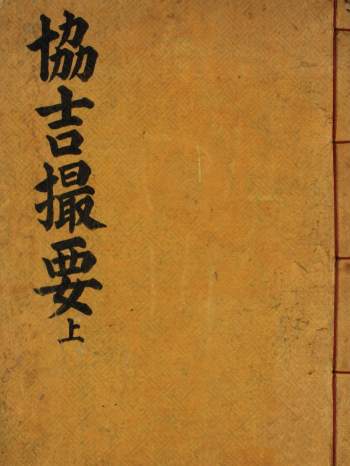 協吉撮要上